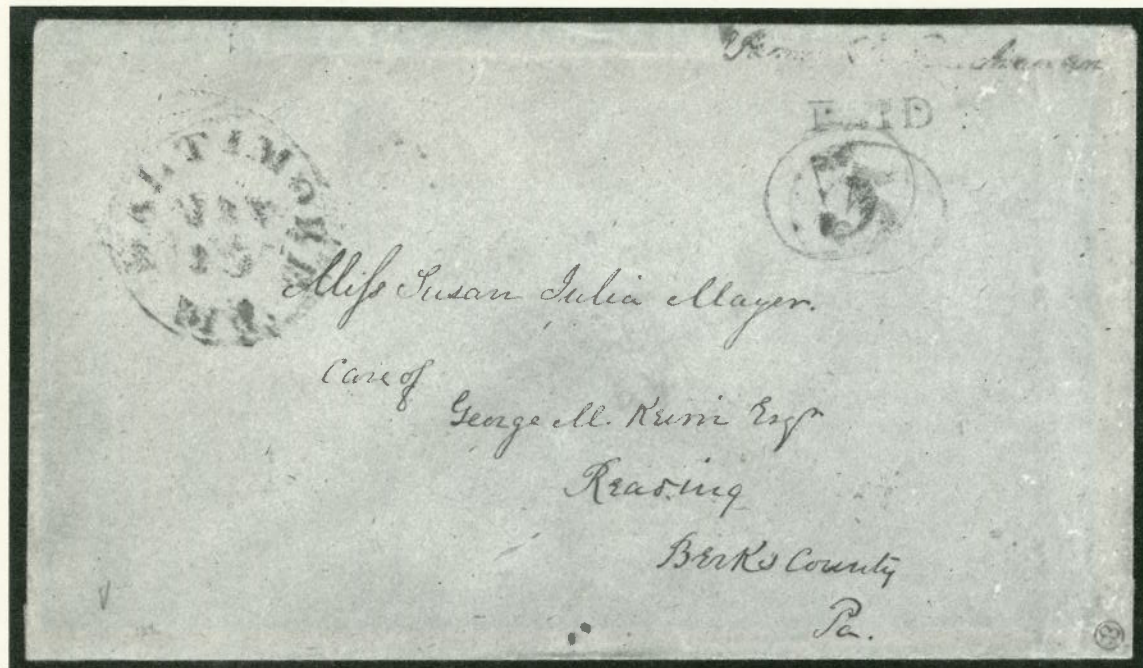 PAID
5
BALTIMORE
MD
Miss Susan Julia Mayer.
Care of
George M. Keim Esqr
Reading
Berks County
Pa.